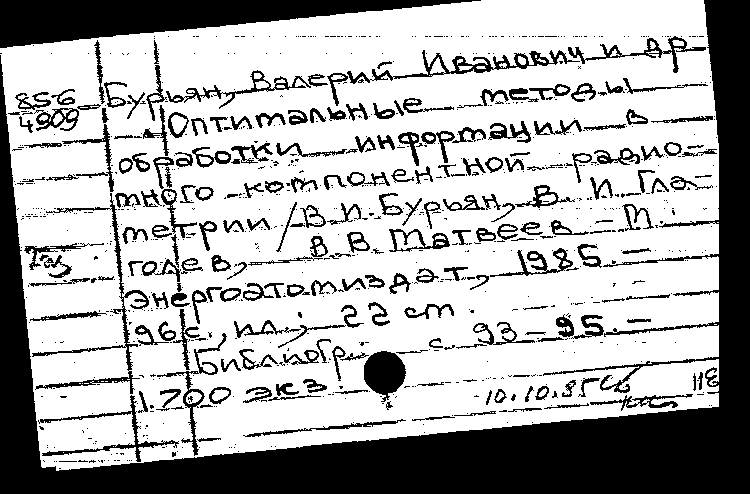 85-6 Бурьян, Валерий Иванович и др
4909 Оптимальные методы
обработки информации в
много-компонентной радио-
метрии / В. И. Бурьян, В. И. Гла-
голев, В. В. Матвеев - М.:
Энергоатомиздат, 1985. —
96 с., ил.; 22 см.
Библиогр.: с. 93-95. —
1.700 экз.
10.10.85 118